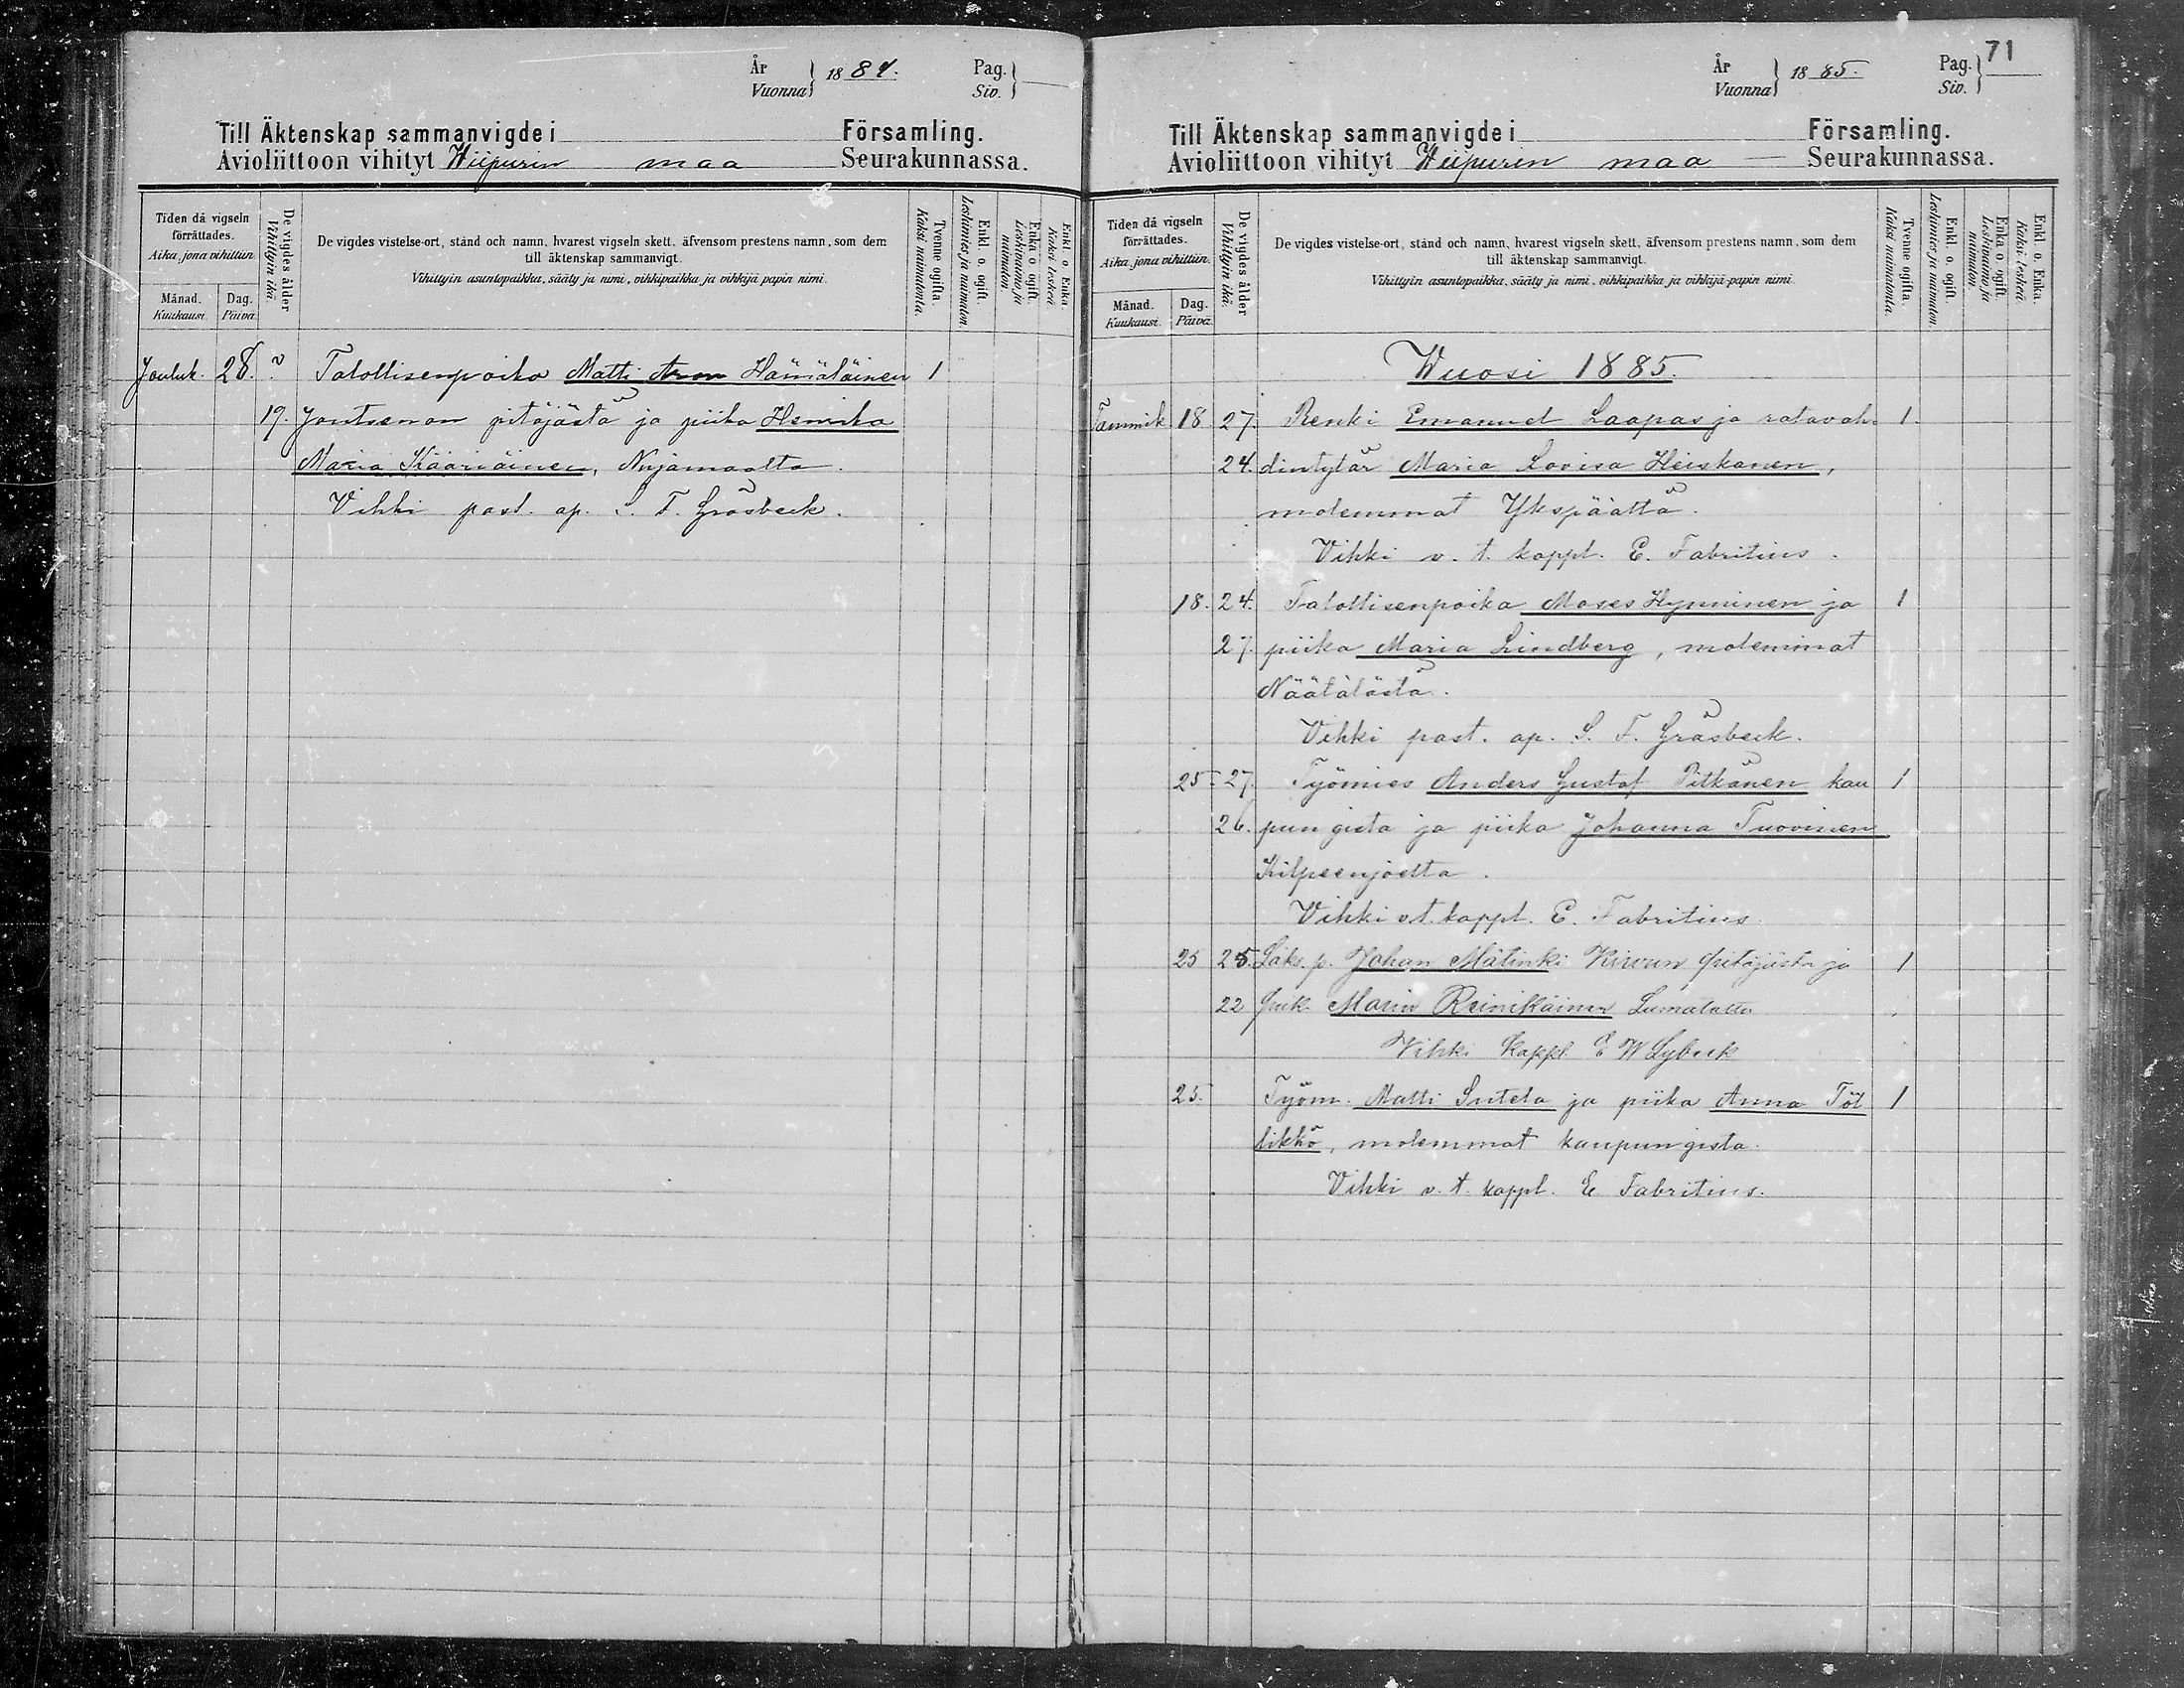 År
Vuonna 1884.
Pag.
Siv.
Till Äktenskap sammanvigde i Församling.
Avioliittoon vihityt Wiipurin maa Seurakunnassa.
Tiden då vigseln förrättades.
Aika, jona vihittiin.
Månad.
Kuukausi.
Dag.
Päivä.
De vigdes ålder
Vihittyin ikä.
De vigdes vistelse-ort, stånd och namn, hvarest vigseln skett, äfvensom prestens namn, som dem
till äktenskap sammanvigt.
Vihittyin asuntopaikka, sääty ja nimi, vihkipaikka ja vihkijä papin nimi.
Tvenne ogifta.
Kaksi naimatonta.
Enkl. o. ogift.
Leskimies ja naimaton.
Enka o. ogift.
Leskivaimo ja naimaton.
Enkl. o. Enka.
Kaksi leskeä.
Jouluk. 28. ? Talollisenpoika Matti Aron Hämäläinen 1
19. Joutsenon pitäjästä ja piika Henrika
Maria Kääriäinen, Nuijamaalta.
Vihki past. ap. S. F. Gräsbeck.
71
År
Vuonna 1885.
Pag.
Siv.
Till Äktenskap sammanvigde i Församling.
Avioliittoon vihityt Wiipurin maa Seurakunnassa.
Tiden då vigseln förrättades.
Aika, jona vihittiin.
Månad.
Kuukausi.
Dag.
Päivä.
De vigdes ålder
Vihittyin ikä.
De vigdes vistelse-ort, stånd och namn, hvarest vigseln skett, äfvensom prestens namn, som dem
till äktenskap sammanvigt.
Vihittyin asuntopaikka, sääty ja nimi, vihkipaikka ja vihkijä papin nimi.
Tvenne ogifta.
Kaksi naimatonta.
Enkl. o. ogift.
Leskimies ja naimaton.
Enka o. ogift.
Leskivaimo ja naimaton.
Enkl. o. Enka.
Kaksi leskeä.
Wuosi 1885.
Tammik 18 27. Renki Emanuel Laapas ja ratavah 1.
24. dintytär Maria Lovisa Heiskanen,
molemmat Ykspäältä.
Vihki v. t. kappl. E. Fabritius.
18. 24. Talollisenpoika Moses Hynninen ja 1
27. piika Maria Lindberg, molemmat
Näätälästä.
Vihki past. ap. S. F. Gräsbeck.
25 27. Työmies Anders Gustaf Pitkänen kau 1
26. pungista ja piika Johanna Tuovinen
Kilpeenjoelta.
Vihki v.t. kappl. E. Fabritius
25 25. Läks. p. Johan Mätinki Kirvun pitäjästä ja 1
22 Maria Reinikäinen
Vihki Kappl. E W Lybeck
25. Työm. Matti Sutela ja piika Anna Töl 1
likkö, molemmat kaupungista.
Vihki v. t. kappl. E. Fabritius.